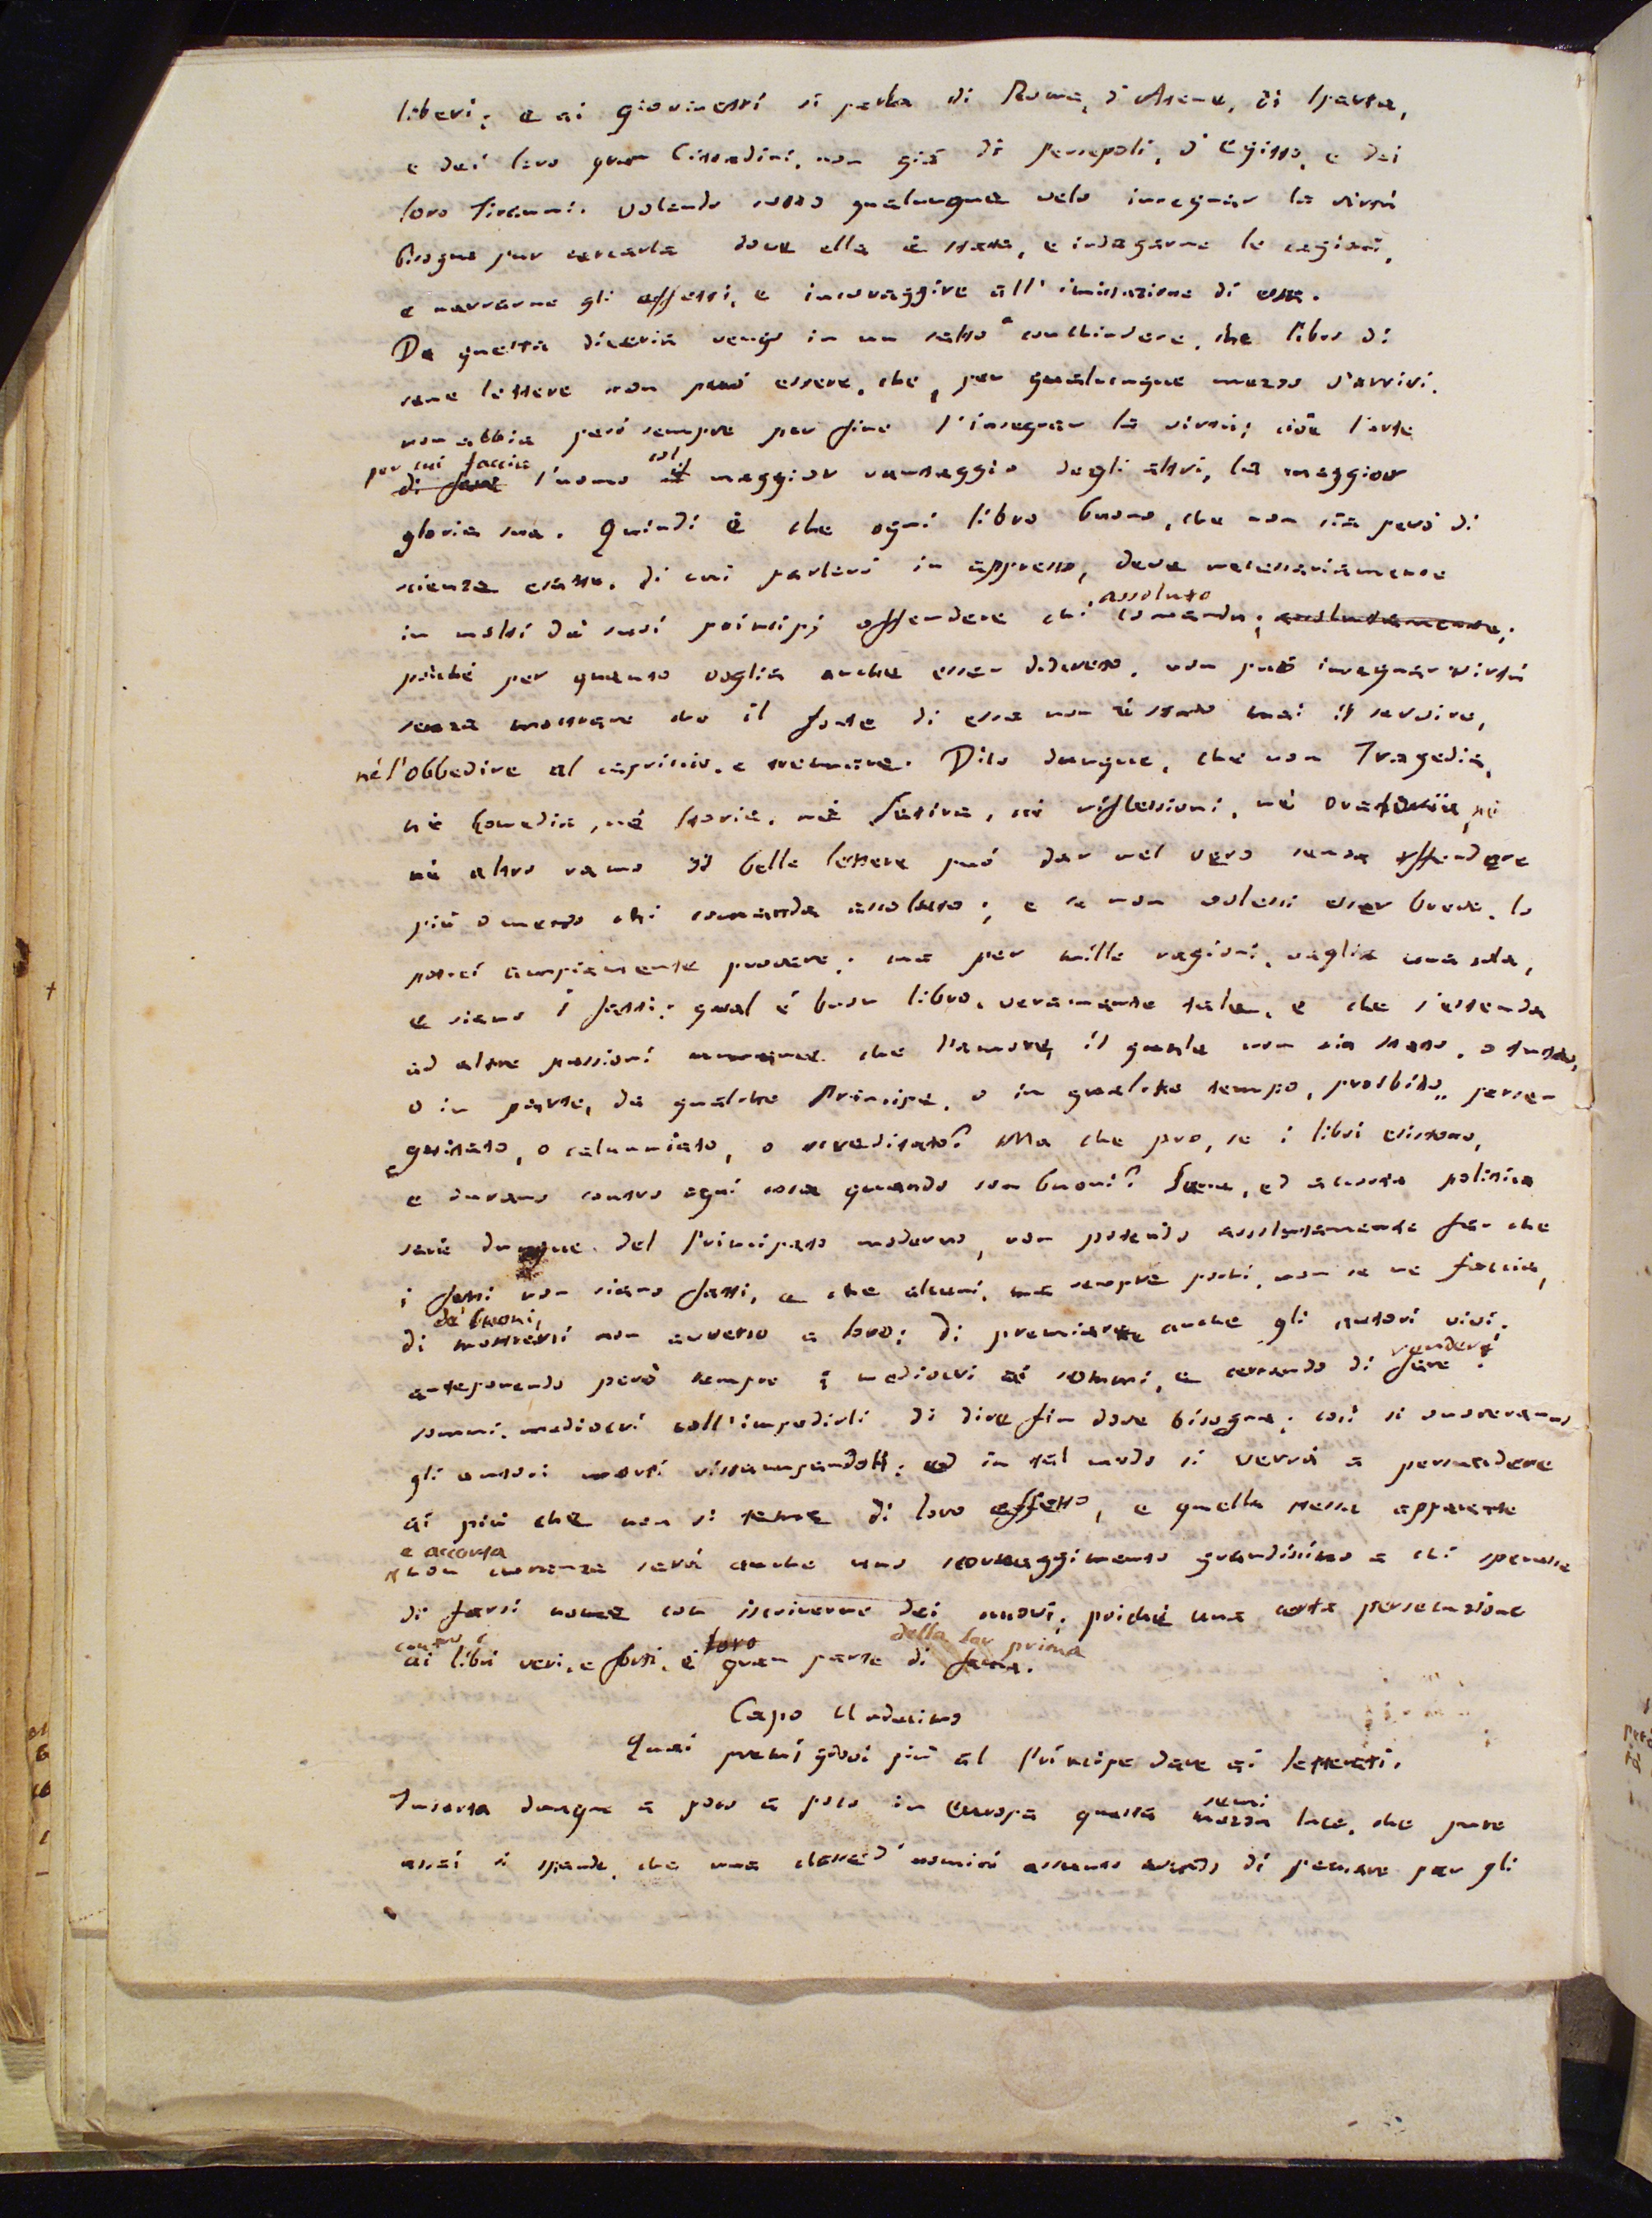 liberi; e ai giovinetti si parla di Roma, d'Atene, di Sparta,
e dei loro gran Cittadini, non già di Persepoli, d'Egitto, e dei
loro Tiranni. Volendo sotto qualunque velo insegnar la virtù
bisogna pur cercarla dove ella è stata, e indagarne le cagioni,
e narrarne gli effetti, e incoraggire all'imitazione di essa.
Da questa diceria vengo in un salto a conchiudere, che libro di
sane lettere non può essere, che, per qualunque mezzo s'arrivi,
non abbia però sempre per fine l'insegnar la virtù; cioè l'arte
per cui faccia col
di fare l'uomo il maggior vantaggio degli altri, la maggior
gloria sua. Quindi è che ogni libro buono, che non sia però di
scienze esatte, di cui parlerò in appresso, deve necessariamente
assoluto
in molti de' suoi principj offendere chi comanda; assolutamente;
poiché per quanto voglia anche esser discreto, non può insegnar virtù
senza mostrare che il fonte di essa non è stato mai il servire,
né l'obbedire al capriccio, e tremare. Dico dunque, che non Tragedia,
né Comedia, né storia, né Satira, né riflessioni, né oratoria, né
né altro ramo di belle lettere può dar nel vero senza offendere
più o meno chi comanda assoluto; e se non volessi esser breve, lo
potrei ampiamente provare; ma per mille ragioni, vaglia una sola,
e siano i fatti: qual è buon libro, veramente tale, e che s'estenda
ad altre passioni umane che l'amore, il quale non sia stato, o tutto,
o in parte, da qualche Principe, o in qualche tempo, proibito, perse-
guitato, o calunniato, o screditato? Ma che pro, se i libri esistono,
e durano contro ogni cosa quando son buoni? Sana, ed accorta politica
sarà dunque del Principato moderno, non potendo assolutamente far che
i fatti non siano fatti, e che alcuni, ma sempre pochi, non se ne faccia,
de' buoni,
di mostrarsi non avverso a loro; di premiare anche gli autori vivi,
renderi
anteponendo però sempre i mediocri ai sommi, e cercando di fare i
sommi, mediocri coll'impedirli di dire fin dove bisogna; così si onoreranno
gli autori morti ristampandoli; ed in tal modo si verrà a persuadere
ai più che non si teme di loro effetto, e quella stessa apparente
e accorta
non curanza sarà anche uno scoraggimento grandissimo a chi sperasse
di farsi nome con iscriverne dei nuovi; poiché una certa persecuzione
contro i loro della lor prima
ai libri veri, e forti, è gran parte di fama.
Capo Undecimo
Quai premi giovi più al Principe dare ai letterati.
semi
Insorta dunque a poco a poco in Europa questa mezza luce, che pure
assai si spande, che una classe d'uomini assunto avendo di pensare per gli